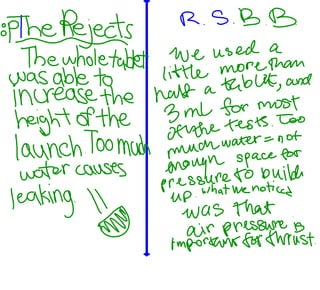 The Rejects
The whole tablet
was able to
increase the
height of the
launch Too much
water causes
leaking.
R.S.B.B
We used a
little more than
half a tablet, and
3 mL for most
of the tests. Too
much water = not
enough space for
pressure to build
up. what we noticed
was that
air pressure is
important for thrust.